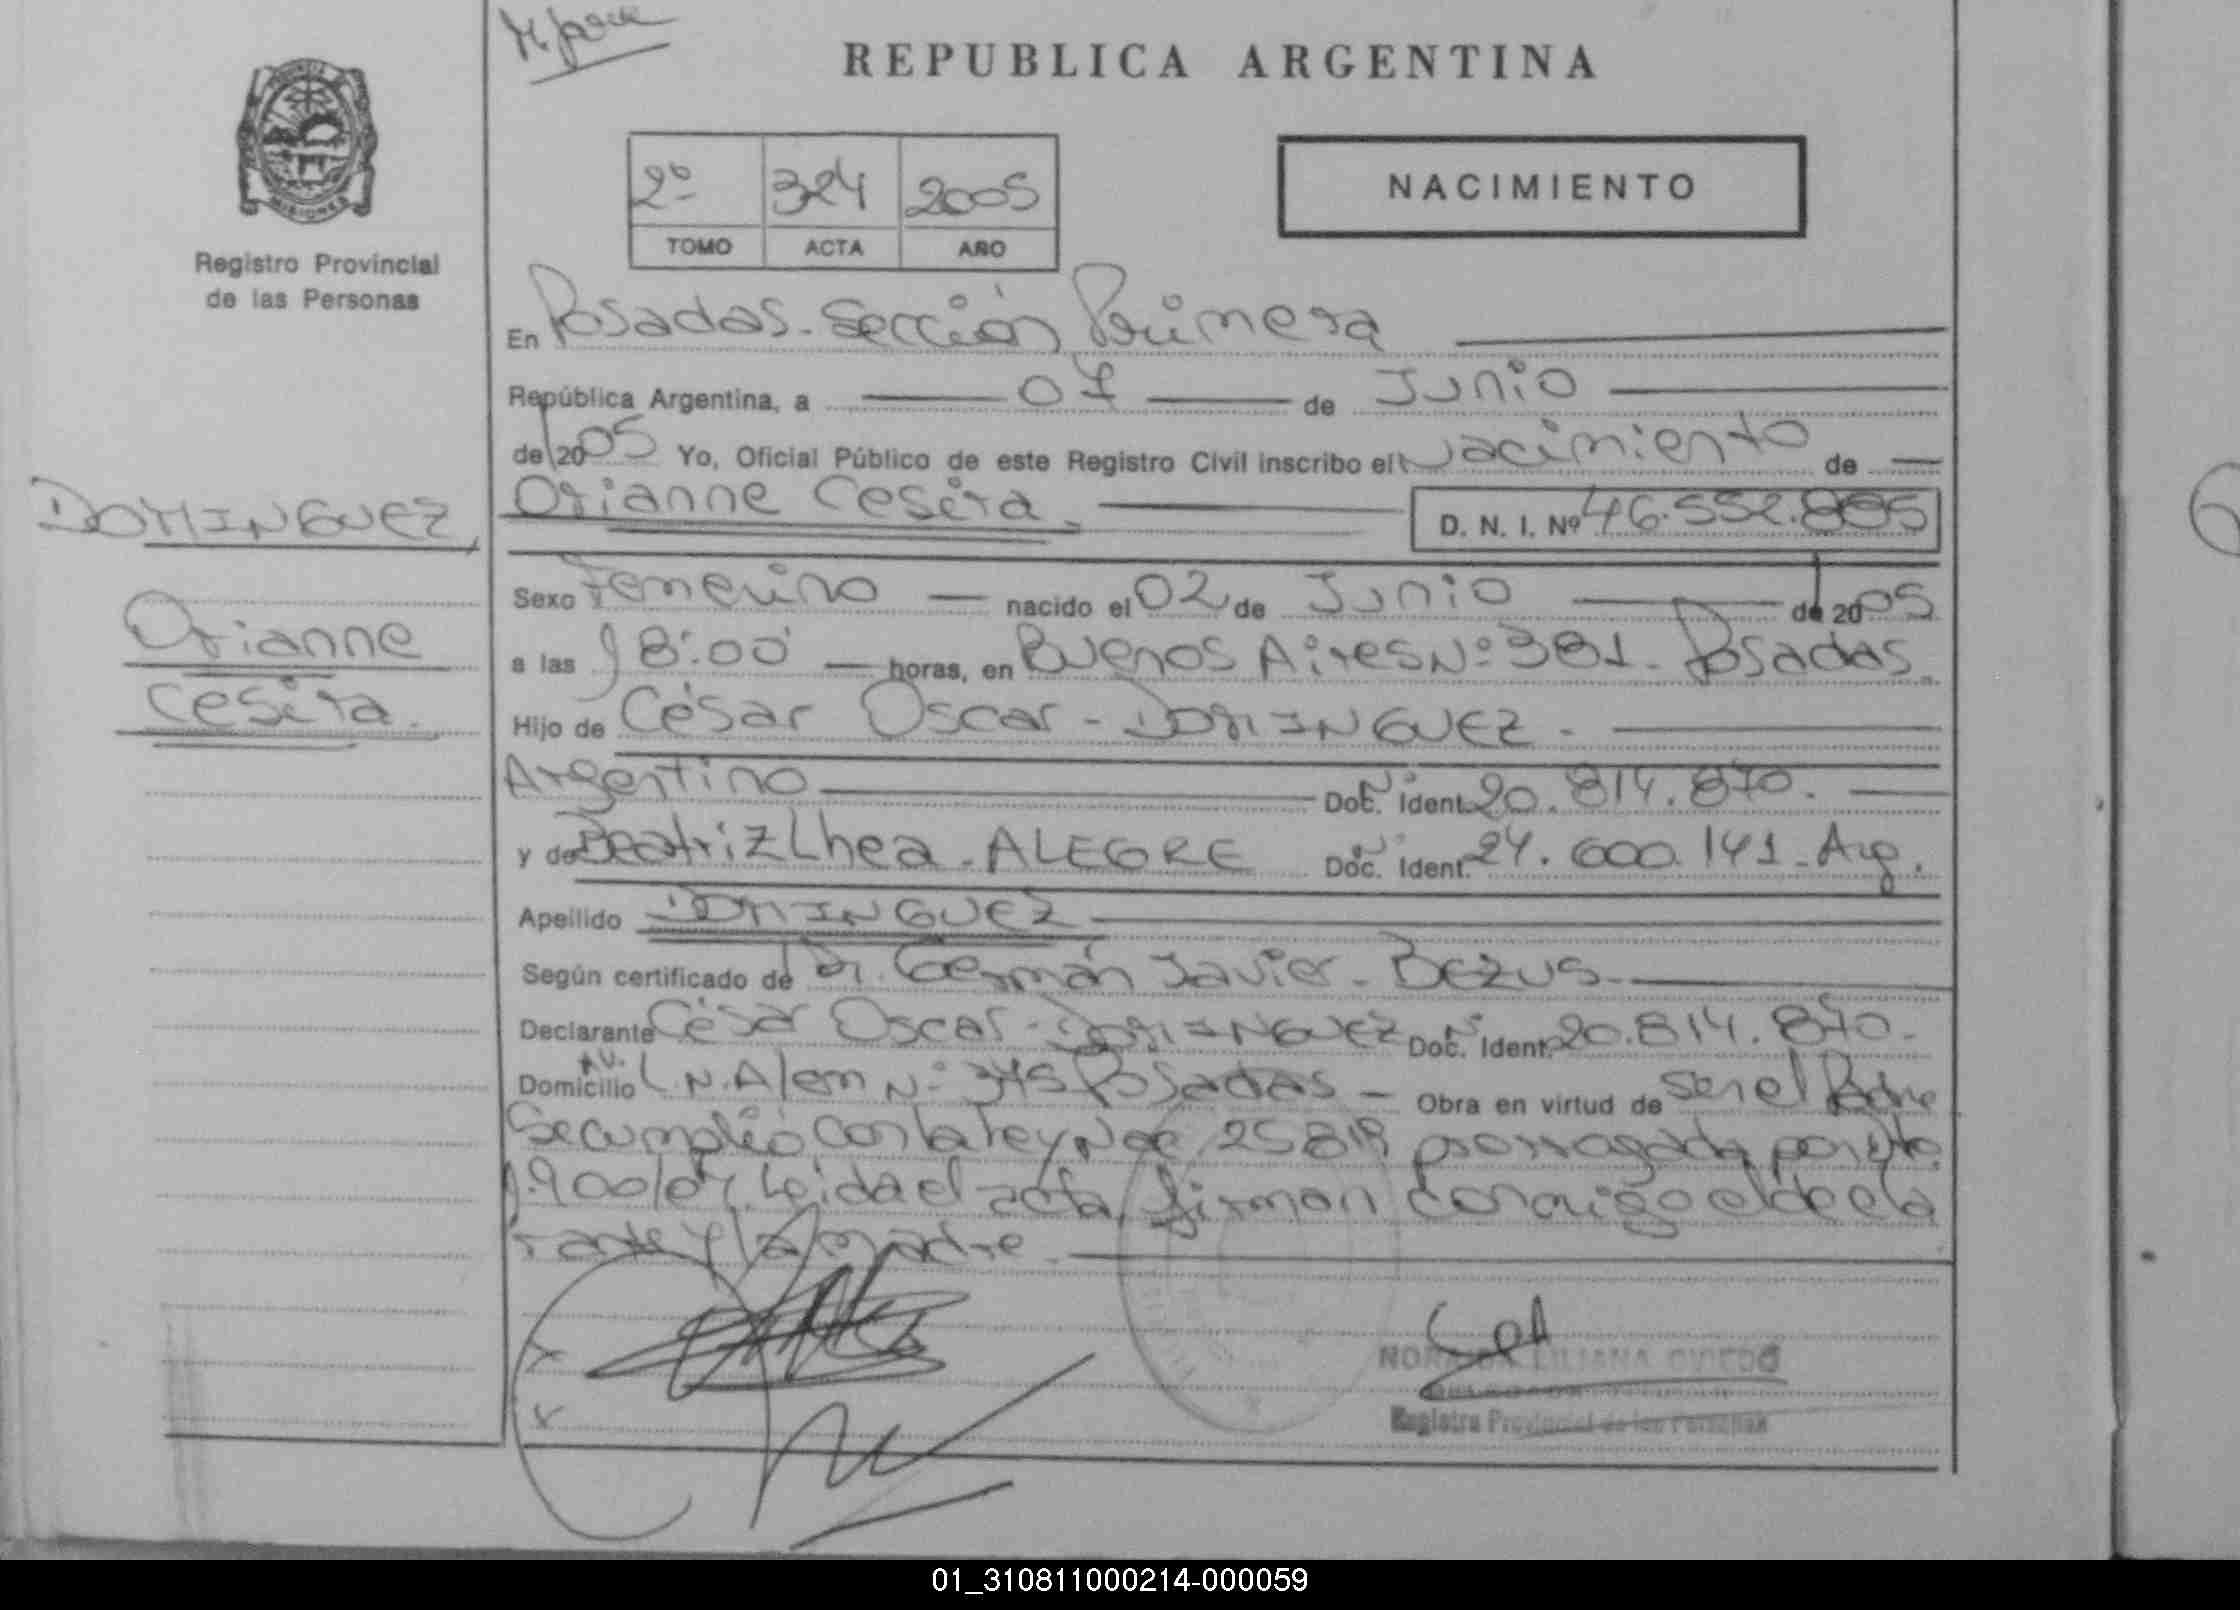 REPUBLICA ARGENTINA
MISIONES
Registro Provincial
de las Personas
2º 324 2005
TOMO ACTA AÑO
NACIMIENTO
En Posadas - Sección Primera
República Argentina, a 07 de Junio
de 2005 Yo, Oficial Público de este Registro Civil inscribo el Nacimiento de
Orianne Cesira D. N. I. Nº 46.552.885
DOMINGUEZ
Orianne
Cesira.
Sexo Femenino nacido el 02 de Junio de 2005
a las 18:00 horas, en Buenos Aires Nº 381 - Posadas
Hijo de César Oscar - DOMINGUEZ -
Argentino Nº Doc. Ident. 20.814.870.
y de Beatriz Lhea - ALEGRE Nº Doc. Ident. 24.600.141 - Arg.
Apellido DOMINGUEZ
Según certificado de Dr. Germán Javier - BEZUS
Declarante César Oscar - DOMINGUEZ Nº Doc. Ident. 20.814.870.
Domicilio AV. L.N. Alem Nº 345 Posadas - Obra en virtud de ser el Padre
Se cumplió con la Ley Nac 25819 prorrogada por Dto.
1.900/04. Leida el acta, firman conmigo el decla
rante y la madre.
LILIANA OVIEDO
Registro Provincial de las Personas
01_310811000214-000059